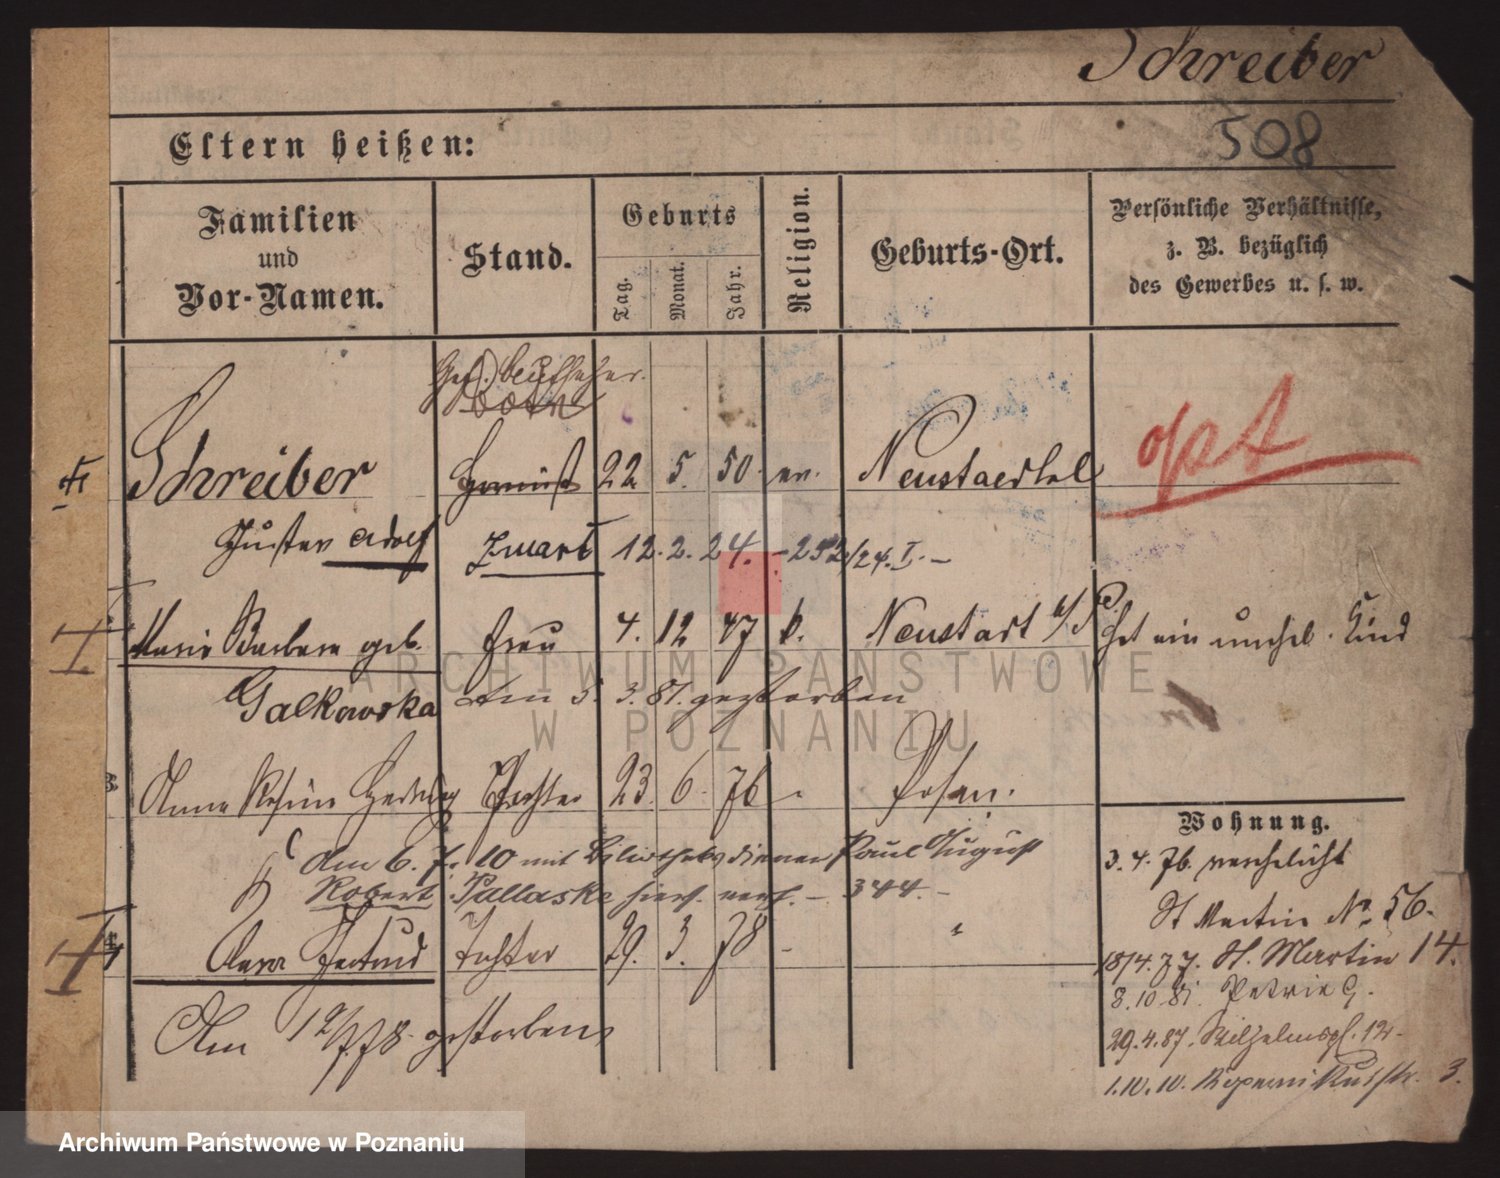 Schreiber
508
Eltern heißen:
Familien
und
Vor-Namen.
Stand.
Geburts
Tag.
Monat.
Jahr.
Religion.
Geburts-Ort.
Persönliche Verhältnisse,
z. B. bezüglich
des Gewerbes u. s. w.
Schreiber 22 5. 50. ev. Neustaedtel
opt
Gustav Adolf 12. 2. 24. - 252/24. I. -
Marie Barbara geb. Frau 4. 12 47 k. Neustadt Hat ein unehel. Kind
Galkowska Am 5. 3. 81. gestorben
Anna Hedwig Tochter 23. 6. 76 Posen.
Wohnung.
Am 6. 7. 10 mit Bibliotheksdiener Paul August
3. 4. 76. verehelicht
Robert Pallaske hier verh. - 344. -
St Martin No 56.
Gertrud Tochter 29. 3. 78 -
18/4. 77. St. Martin 14.
8. 10. 81. Petrie 9.
Am 12/7 78. gestorben
29. 4. 87. Wilhelmspl. 12.
1. 10. 10. 3.
ARCHIWUM PAŃSTWOWE
W POZNANIU
Archiwum Państwowe w Poznaniu